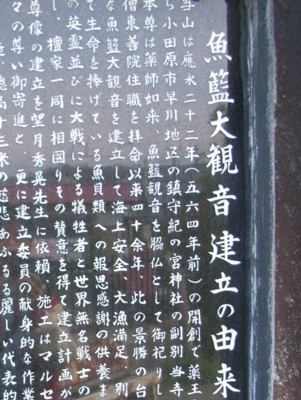 魚籃大観音建立の由来
当山は應永二十二年（五六四年前）の開創で薬王
ら小田原市早川地区の鎮守紀の宮神社の副別当寺
本尊は薬師如来、魚籃観音を脇仏として御祀りし
僧東善院住職を拝命以来四十余年 此の景勝の台
な魚籃大観音を建立して海上安全 大漁満足、別
て生命を捧げている魚貝類への報恩感謝の供養ま
の英霊並びに大戦による犠牲者と世界無名戦士の
し、檀家一同に相図りその賛意を得て建立計画が
尊像の建立を望月秀晃先生に依頼 施工はマルセ
々の尊い御寄進と 更に建立委員の献身的な作業
高十三米の慈悲あふるる麗しい代表的